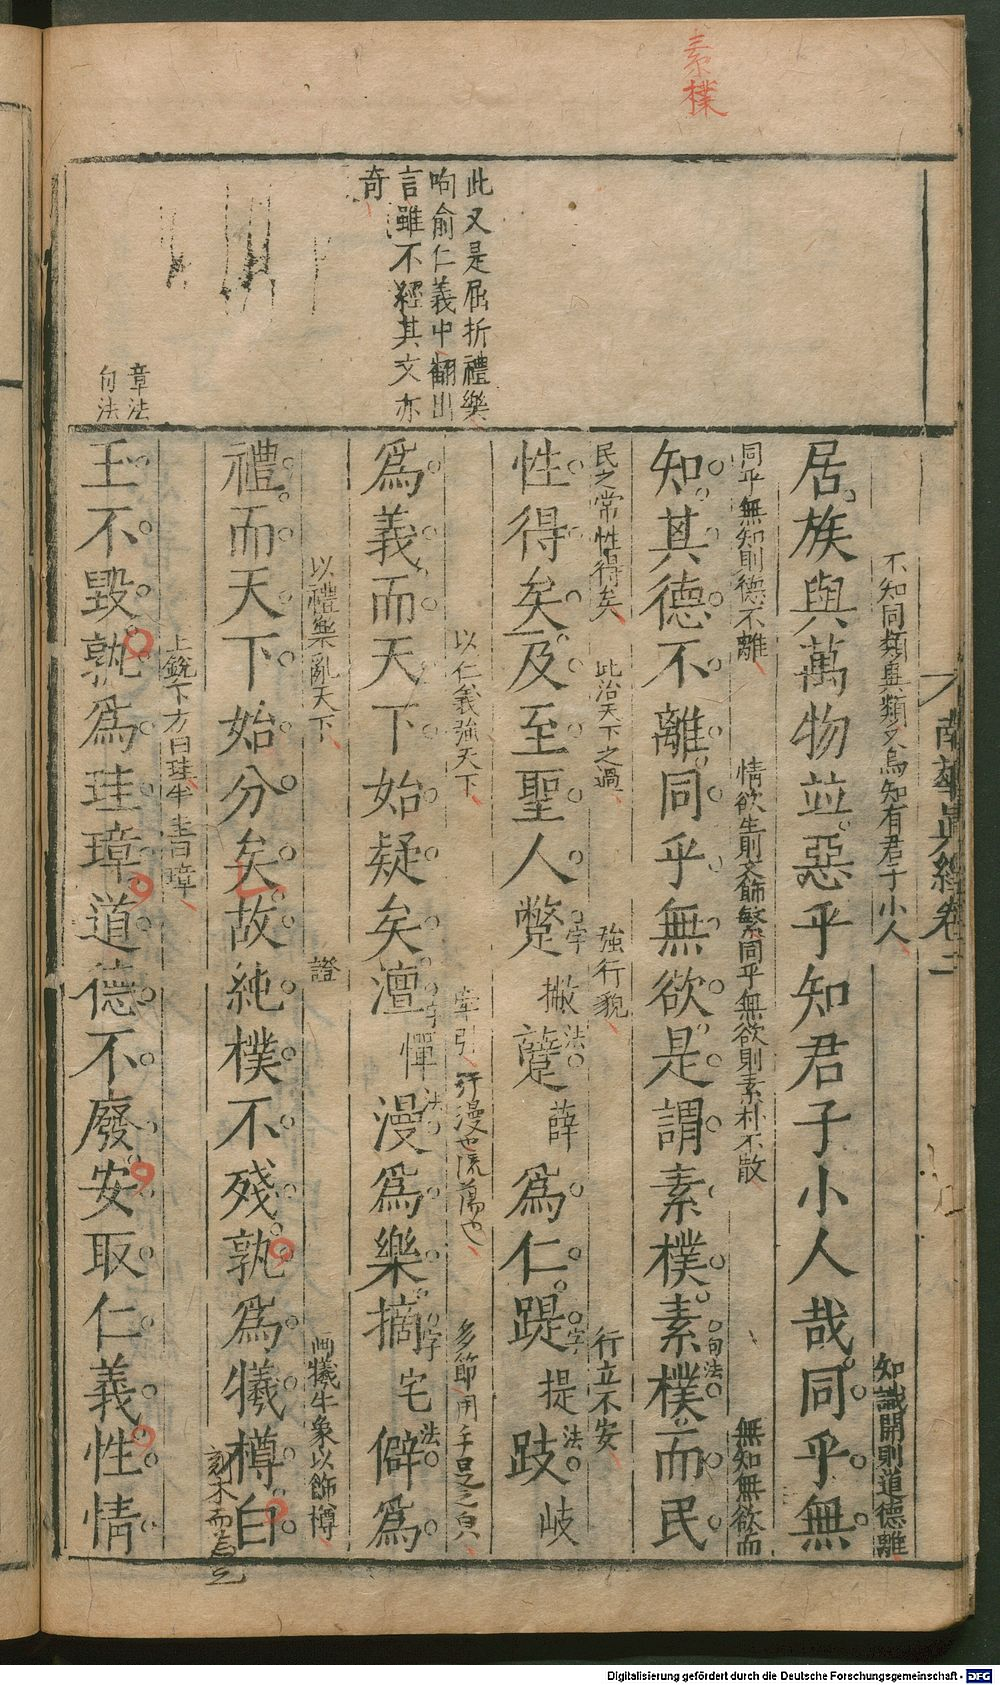 素樸
此又是屈折禮樂
呴俞仁義中翻出
言雖不經其文亦
奇
章法
句法
南華眞經卷二
不知同類異類又烏知有君子小人
知識開則道德離
居族與萬物並惡乎知君子小人哉同乎無
同乎無知則德不離
情欲生則文飾繁同乎無欲則素朴不散
無知無欲而
知其德不離同乎無欲是謂素樸素樸而民
句法
民之常性得矣
此治天下之過
強行貌
行立不安
性得矣及至聖人蹩撇躠薛爲仁踶提跂岐
字法
字法
以仁義強天下
牽引
汗漫也流蕩也
多節用手足之皃
爲義而天下始疑矣澶憚漫爲樂摘宅僻爲
字法
字法
以禮樂亂天下
證
画犧牛象以飾樽
禮而天下始分矣故純樸不殘孰爲犧樽白
刻木而爲之
上銳下方曰珪半圭曰璋
玉不毀孰爲珪璋道德不廢安取仁義性情
Digitalisierung gefördert durch die Deutsche Forschungsgemeinschaft - DFG